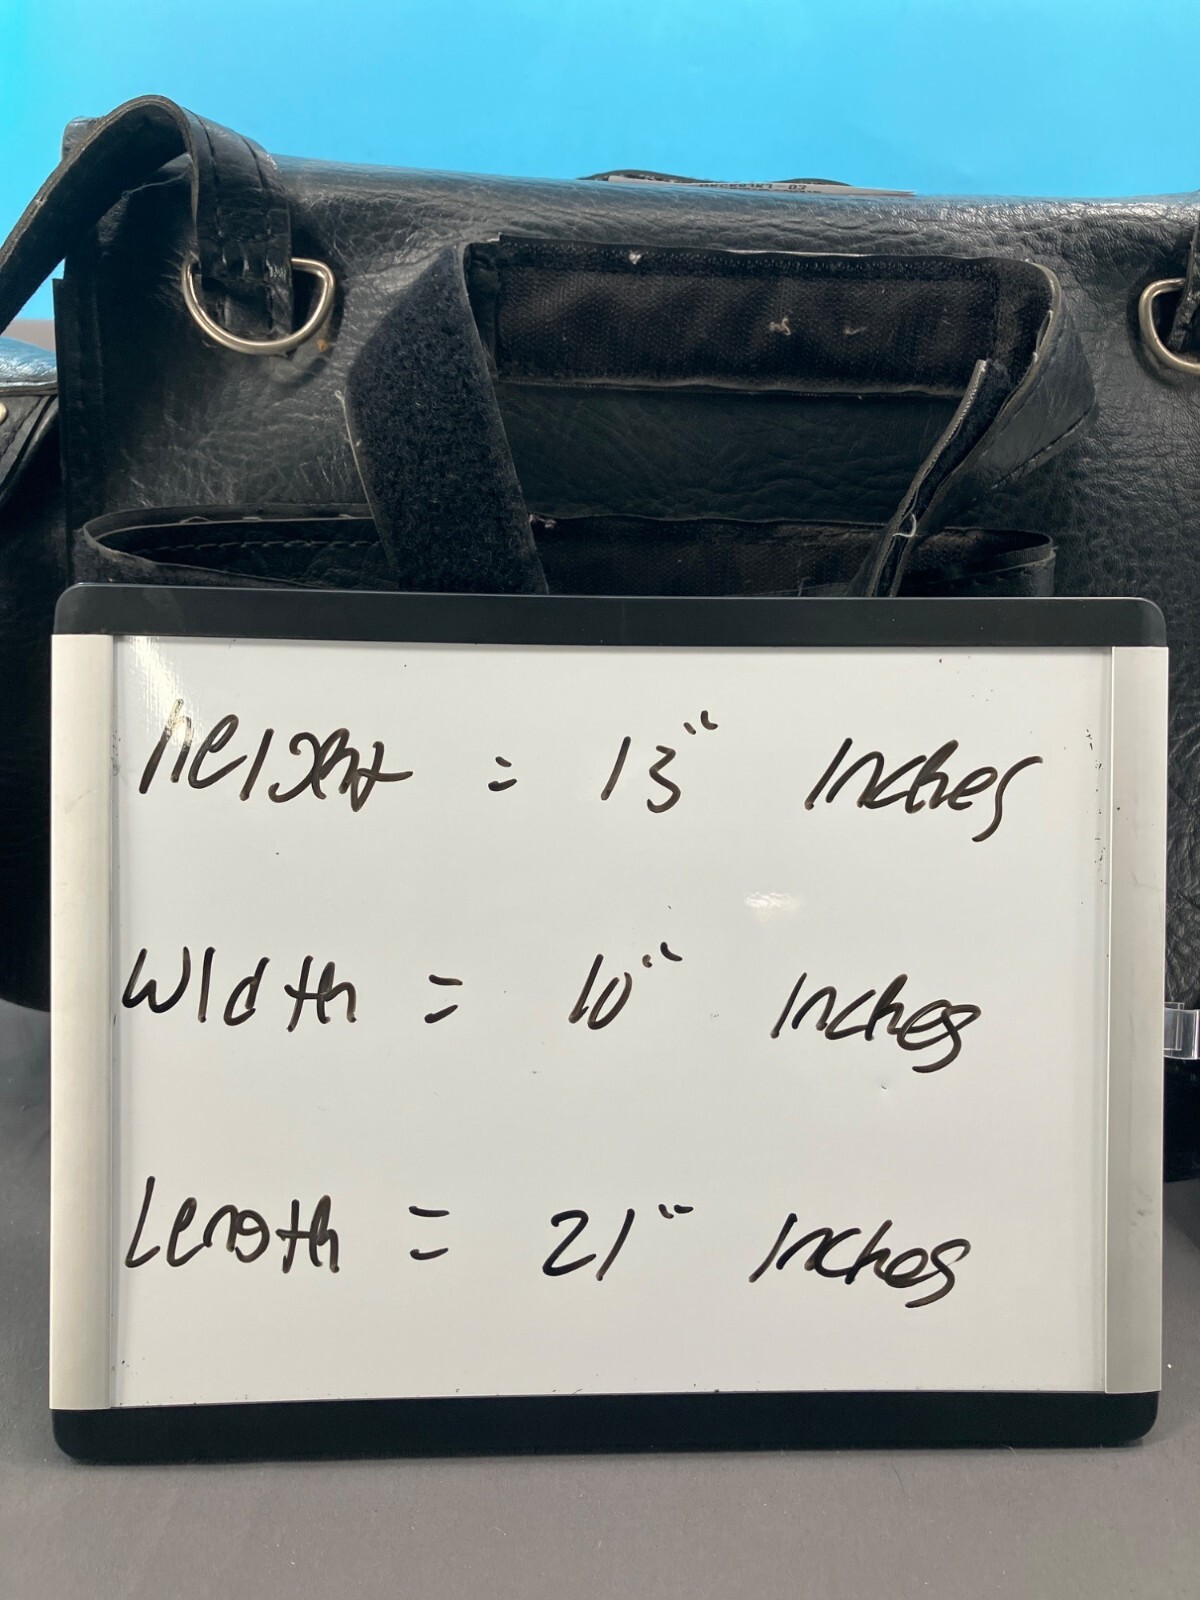 Height = 13" Inches
Width = 10" Inches
Length = 21" Inches